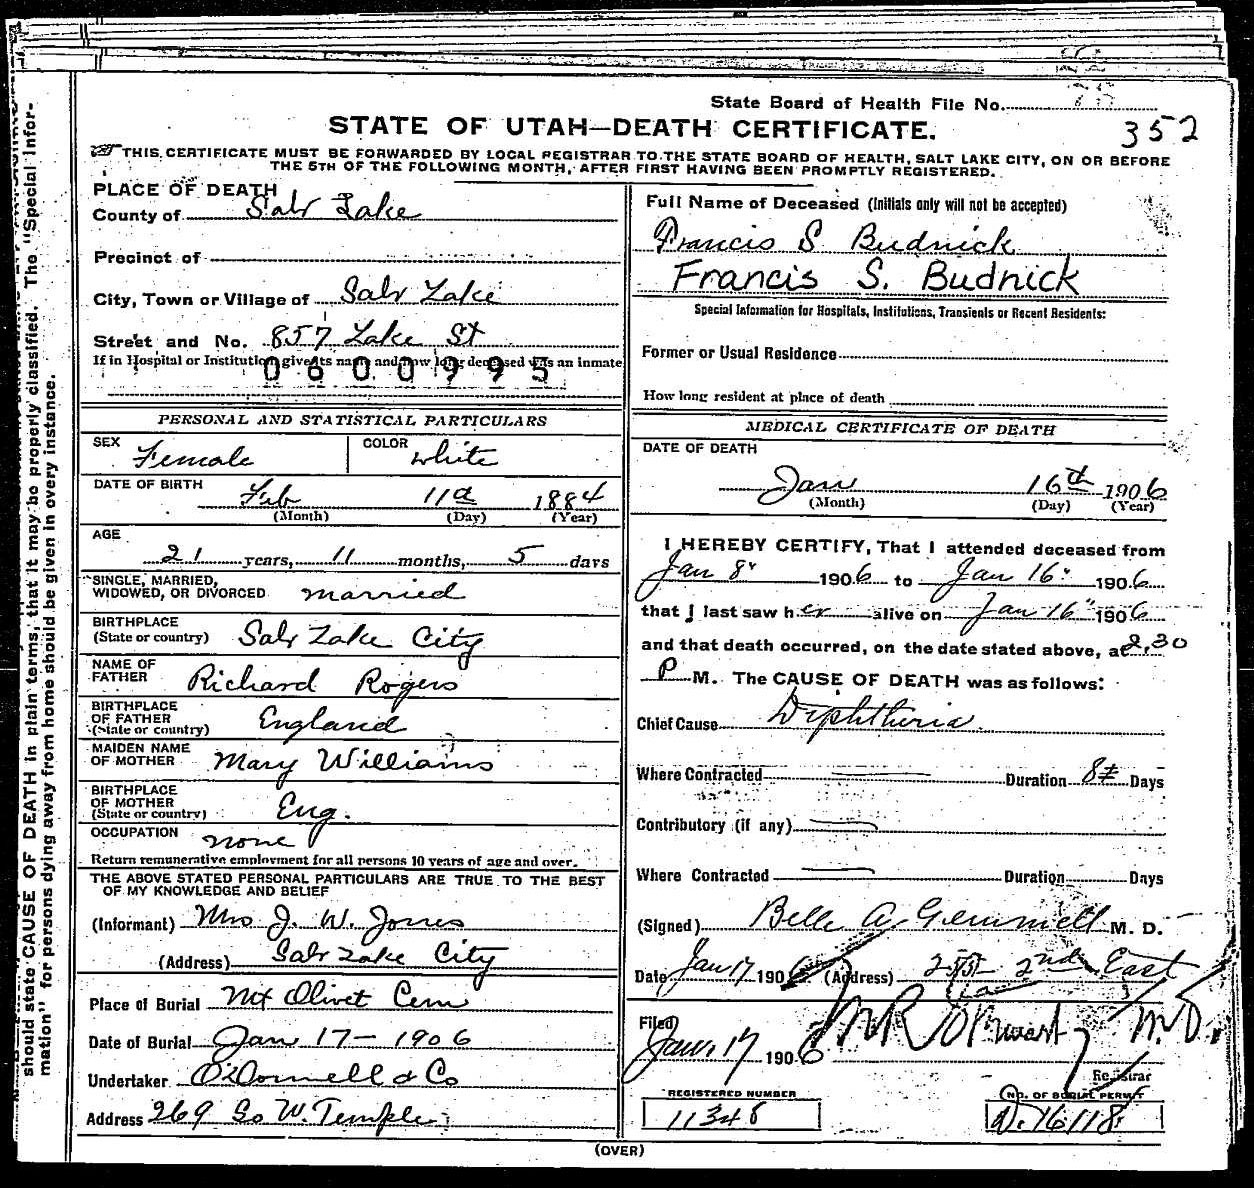 State Board of Health File No.
352
STATE OF UTAH—DEATH CERTIFICATE.
THIS CERTIFICATE MUST BE FORWARDED BY LOCAL REGISTRAR TO THE STATE BOARD OF HEALTH, SALT LAKE CITY, ON OR BEFORE
THE 5TH OF THE FOLLOWING MONTH, AFTER FIRST HAVING BEEN PROMPTLY REGISTERED.
should state CAUSE OF DEATH in plain terms, that it may be properly classified. The "Special Infor-
mation" for persons dying away from home should be given in every instance.
PLACE OF DEATH
County of Salt Lake
Precinct of
City, Town or Village of Salt Lake
Street and No. 857 Lake St
If in Hospital or Institution give its name and how long deceased was an inmate
0600995
PERSONAL AND STATISTICAL PARTICULARS
SEX Female COLOR white
DATE OF BIRTH Feb 11th 1884
(Month) (Day) (Year)
AGE
21 years, 11 months, 5 days
SINGLE, MARRIED,
WIDOWED, OR DIVORCED married
BIRTHPLACE
(State or country) Salt Lake City
NAME OF
FATHER Richard Rogers
BIRTHPLACE
OF FATHER
(State or country) England
MAIDEN NAME
OF MOTHER Mary Williams
BIRTHPLACE
OF MOTHER
(State or country) Eng.
OCCUPATION none
Return remunerative employment for all persons 10 years of age and over.
THE ABOVE STATED PERSONAL PARTICULARS ARE TRUE TO THE BEST
OF MY KNOWLEDGE AND BELIEF
(Informant) Mrs J. W. Jones
(Address) Salt Lake City
Place of Burial Mt Olivet Cem
Date of Burial Jan 17 - 1906
Undertaker O'Donnell & Co
Address 269 So W. Temple
Full Name of Deceased (Initials only will not be accepted)
Francis S Budnick
Francis S. Budnick
Special Information for Hospitals, Institutions, Transients or Recent Residents:
Former or Usual Residence
How long resident at place of death
MEDICAL CERTIFICATE OF DEATH
DATE OF DEATH
Jan 16th 1906
(Month) (Day) (Year)
I HEREBY CERTIFY, That I attended deceased from
Jan 8" 1906 to Jan 16" 1906
that I last saw her alive on Jan 16" 1906
and that death occurred, on the date stated above, at 2.30
P M. The CAUSE OF DEATH was as follows:
Chief Cause Diphtheria
Where Contracted Duration 8 Days
Contributory (if any)
Where Contracted Duration Days
(Signed) Belle A Gemmell M. D.
Date Jan 17 1906 (Address) 255 2nd East
Filed
Jan 17 1906 M R Stewart M.D.
Registrar
REGISTERED NUMBER
11348
NO. OF BURIAL PERMIT
D. 16118
(OVER)